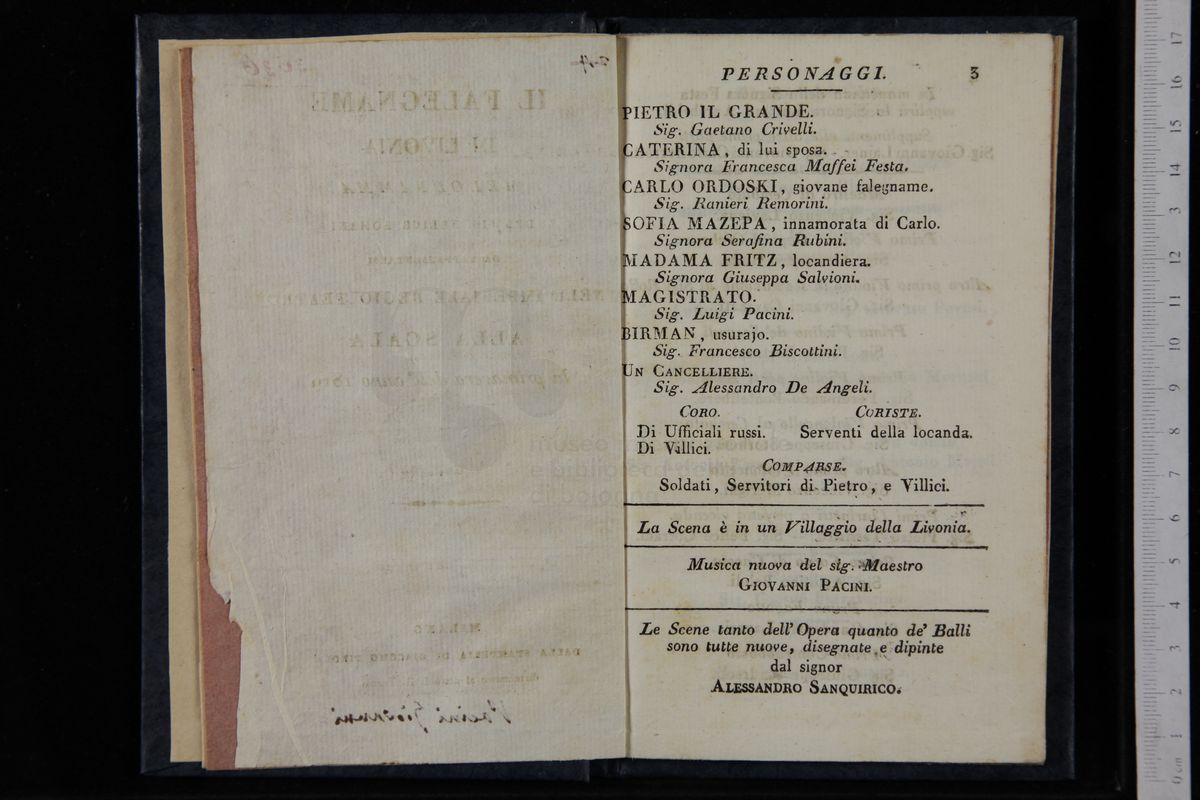 PERSONAGGI. 3
PIETRO IL GRANDE.
Sig. Gaetano Crivelli.
CATERINA, di lui sposa.
Signora Francesca Maffei Festa.
CARLO ORDOSKI, giovane falegname.
Sig. Ranieri Remorini.
SOFIA MAZEPA, innamorata di Carlo.
Signora Serafina Rubini.
MADAMA FRITZ, locandiera.
Signora Giuseppa Salvioni.
MAGISTRATO.
Sig. Luigi Pacini.
BIRMAN, usurajo.
Sig. Francesco Biscottini.
UN CANCELLIERE.
Sig. Alessandro De Angeli.
CORO. CORISTE.
Di Ufficiali russi. Serventi della locanda.
Di Villici.
COMPARSE.
Soldati, Servitori di Pietro, e Villici.
La Scena è in un Villaggio della Livonia.
Musica nuova del sig. Maestro
GIOVANNI PACINI.
Le Scene tanto dell' Opera quanto de' Balli
sono tutte nuove, disegnate e dipinte
dal signor
ALESSANDRO SANQUIRICO.
IL FALEGNAME
IN LIVONIA
MELODRAMMA
ALLA SCALA
MILANO
DALLA STAMPERIA DI GIACOMO PIROLA
Pacini Giovanni
museo
e biblioteca
di bologna
0 cm 1 2 3 4 5 6 7 8 9 10 11 12 13 14 15 16 17